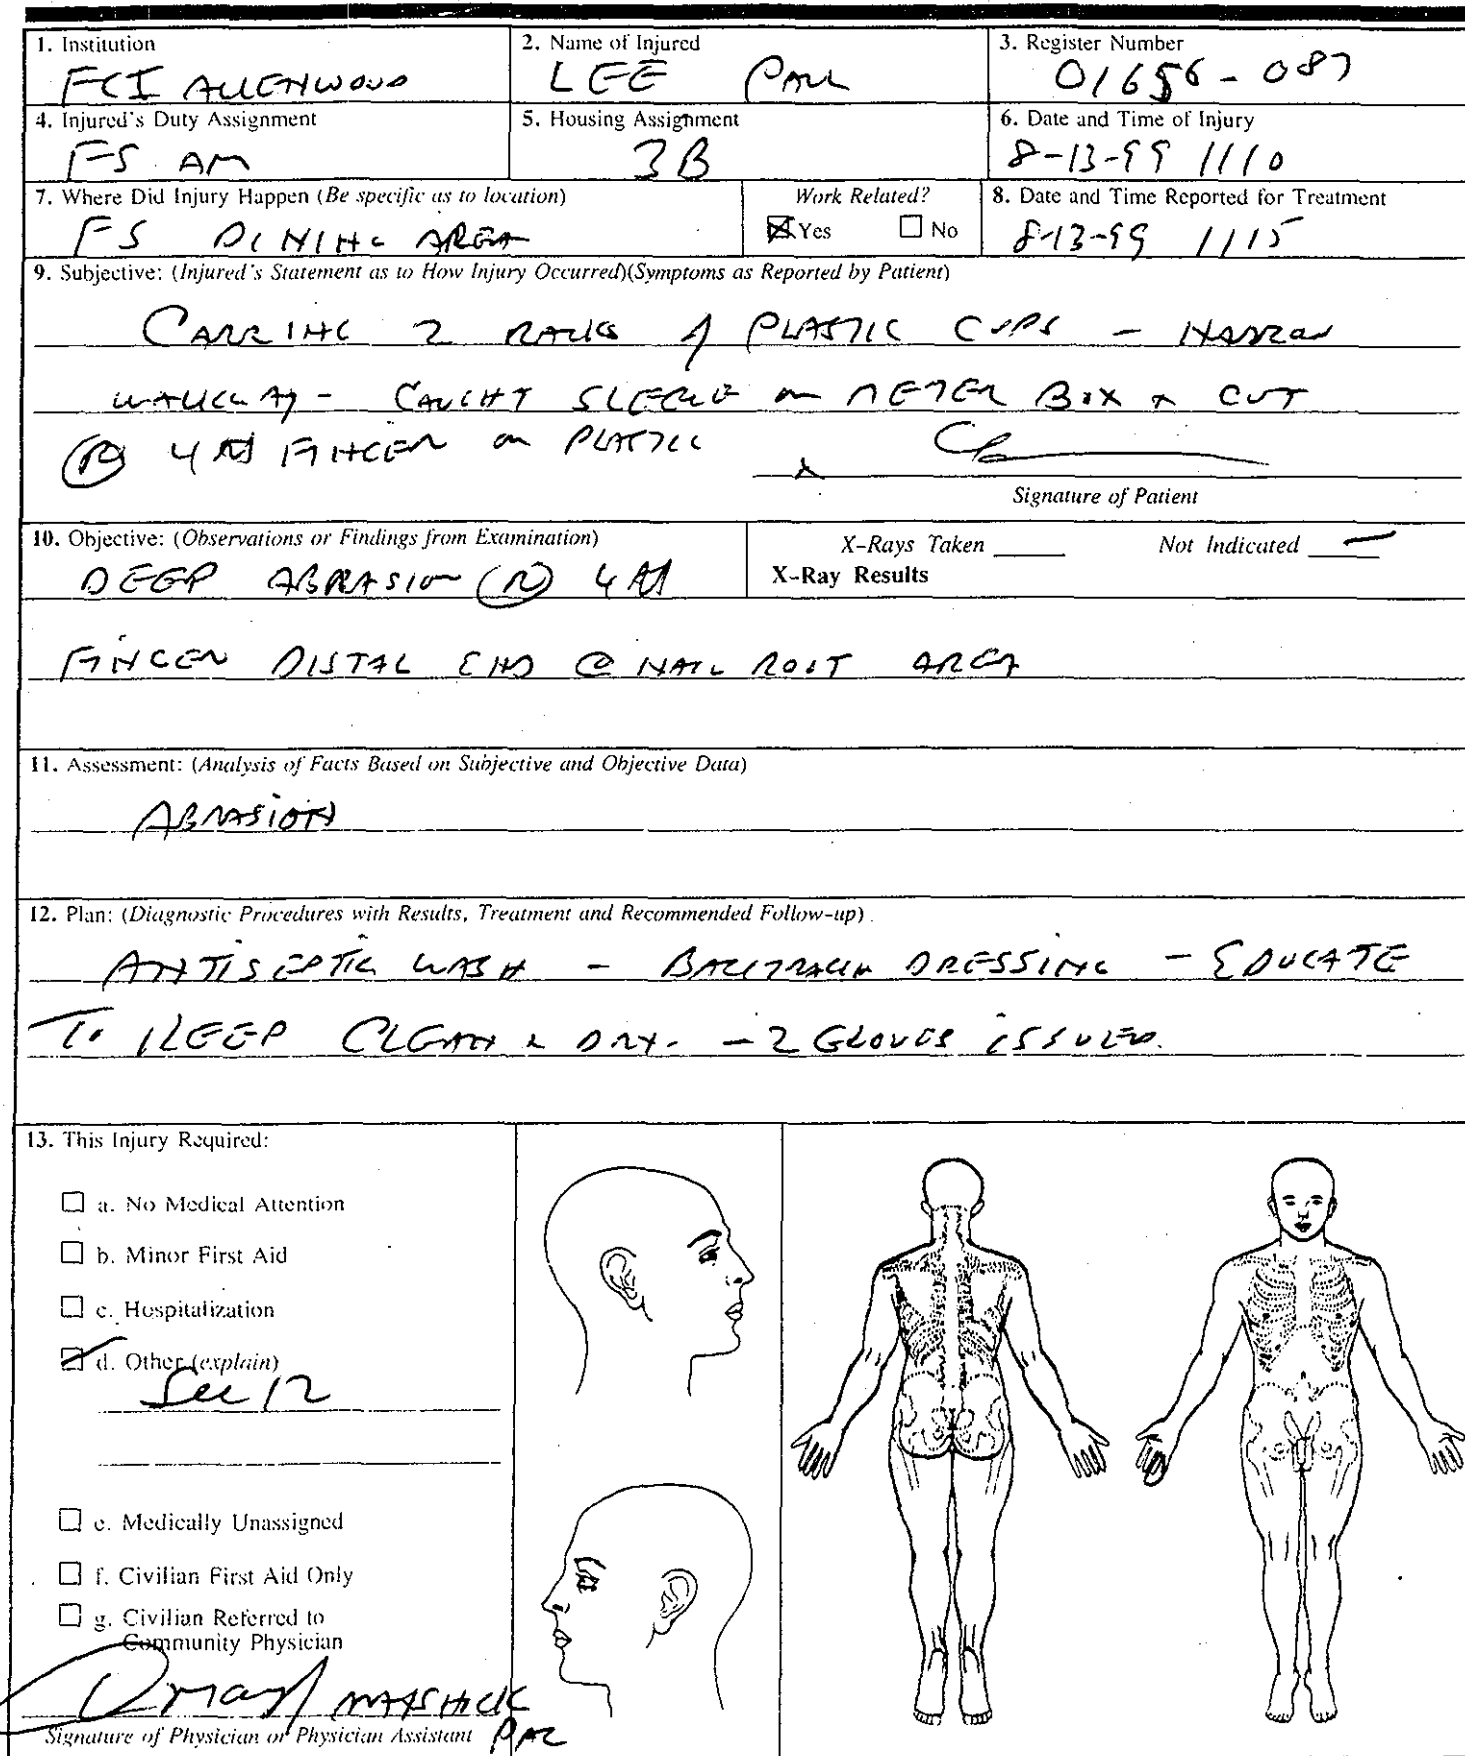 1. Institution
FCI ALLENWOOD
2. Name of Injured
LEE PAUL
3. Register Number
01656-087
4. Injured's Duty Assignment
FS AM
5. Housing Assignment
3B
6. Date and Time of Injury
8-13-99 1110
7. Where Did Injury Happen (Be specific as to location)
FS DINING AREA
Work Related?
Yes No
8. Date and Time Reported for Treatment
8-13-99 1115
9. Subjective: (Injured's Statement as to How Injury Occurred)(Symptoms as Reported by Patient)
CARRING 2 RACKS of PLASTIC CUPS - NARROW
WALKWAY - CAUGHT SLEEVE on METER BOX & CUT
(R) 4th FINGER on PLASTIC
x
Signature of Patient
10. Objective: (Observations or Findings from Examination)
DEEP ABRASION (R) 4th
X-Rays Taken Not Indicated
X-Ray Results
FINGER DISTAL END @ NAIL ROOT AREA
11. Assessment: (Analysis of Facts Based on Subjective and Objective Data)
ABRASION
12. Plan: (Diagnostic Procedures with Results, Treatment and Recommended Follow-up)
ANTISEPTIC WASH - BACITRACIN DRESSING - EDUCATE
To KEEP CLEAN & DRY. - 2 GLOVES ISSUED.
13. This Injury Required:
a. No Medical Attention
b. Minor First Aid
c. Hospitalization
d. Other (explain)
See 12
e. Medically Unassigned
f. Civilian First Aid Only
g. Civilian Referred to
Community Physician
Signature of Physician or Physician Assistant